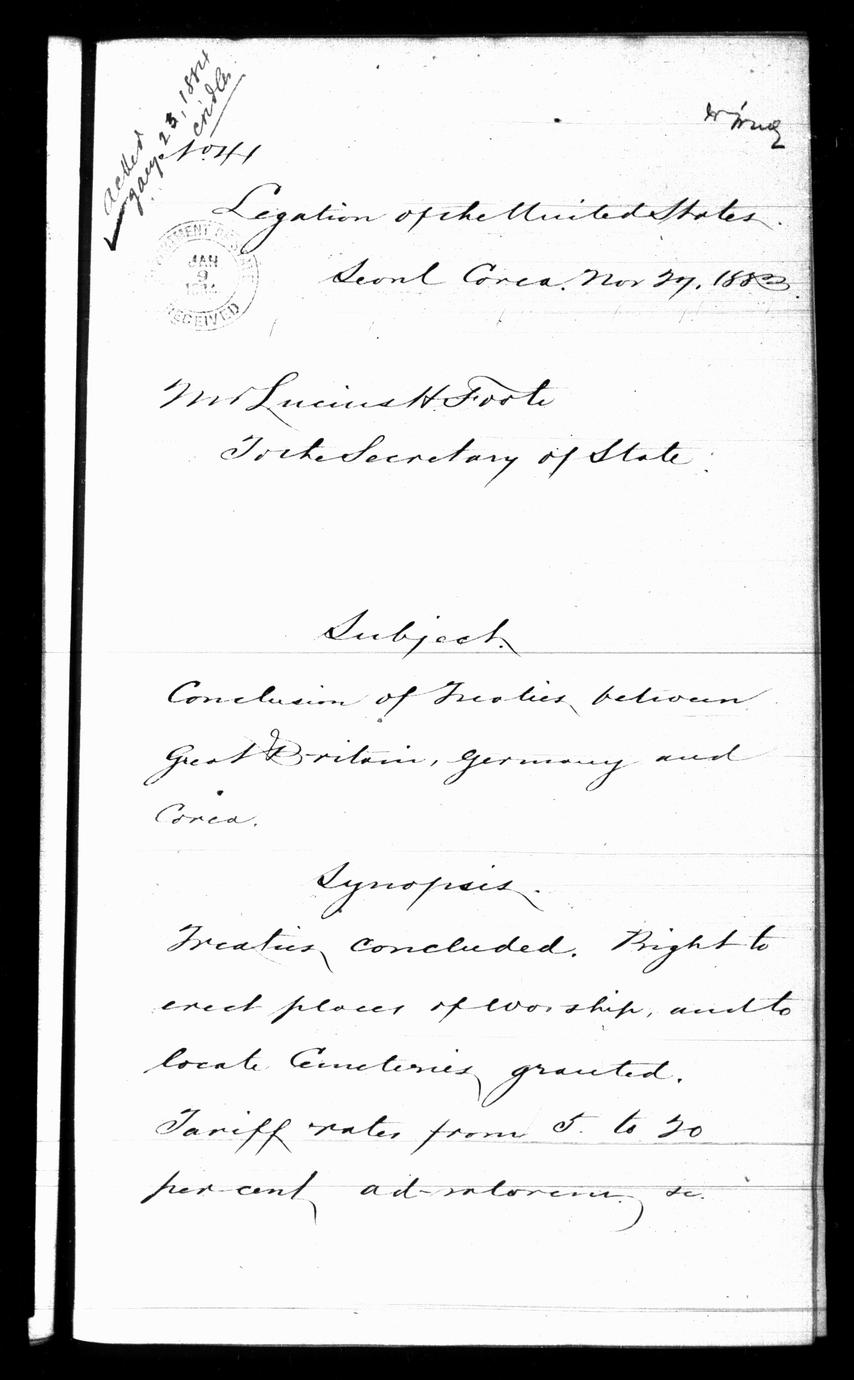 acked
Jany. 23, 1884
No 41
Legation of the United States.
Seoul Corea. Nov 27, 1883.
DEPARTMENT OF STATE
JAN
9
1884
RECEIVED
Mr Lucius H. Foote
To the Secretary of State.
Subject.
Conclusion of Treaties between
Great Britain, Germany and
Corea.
Synopsis.
Treaties concluded. Right to
erect places of worship, and to
locate Cemeteries granted.
Tariff rates from 5 to 20
per-cent ad-valorem, &c.